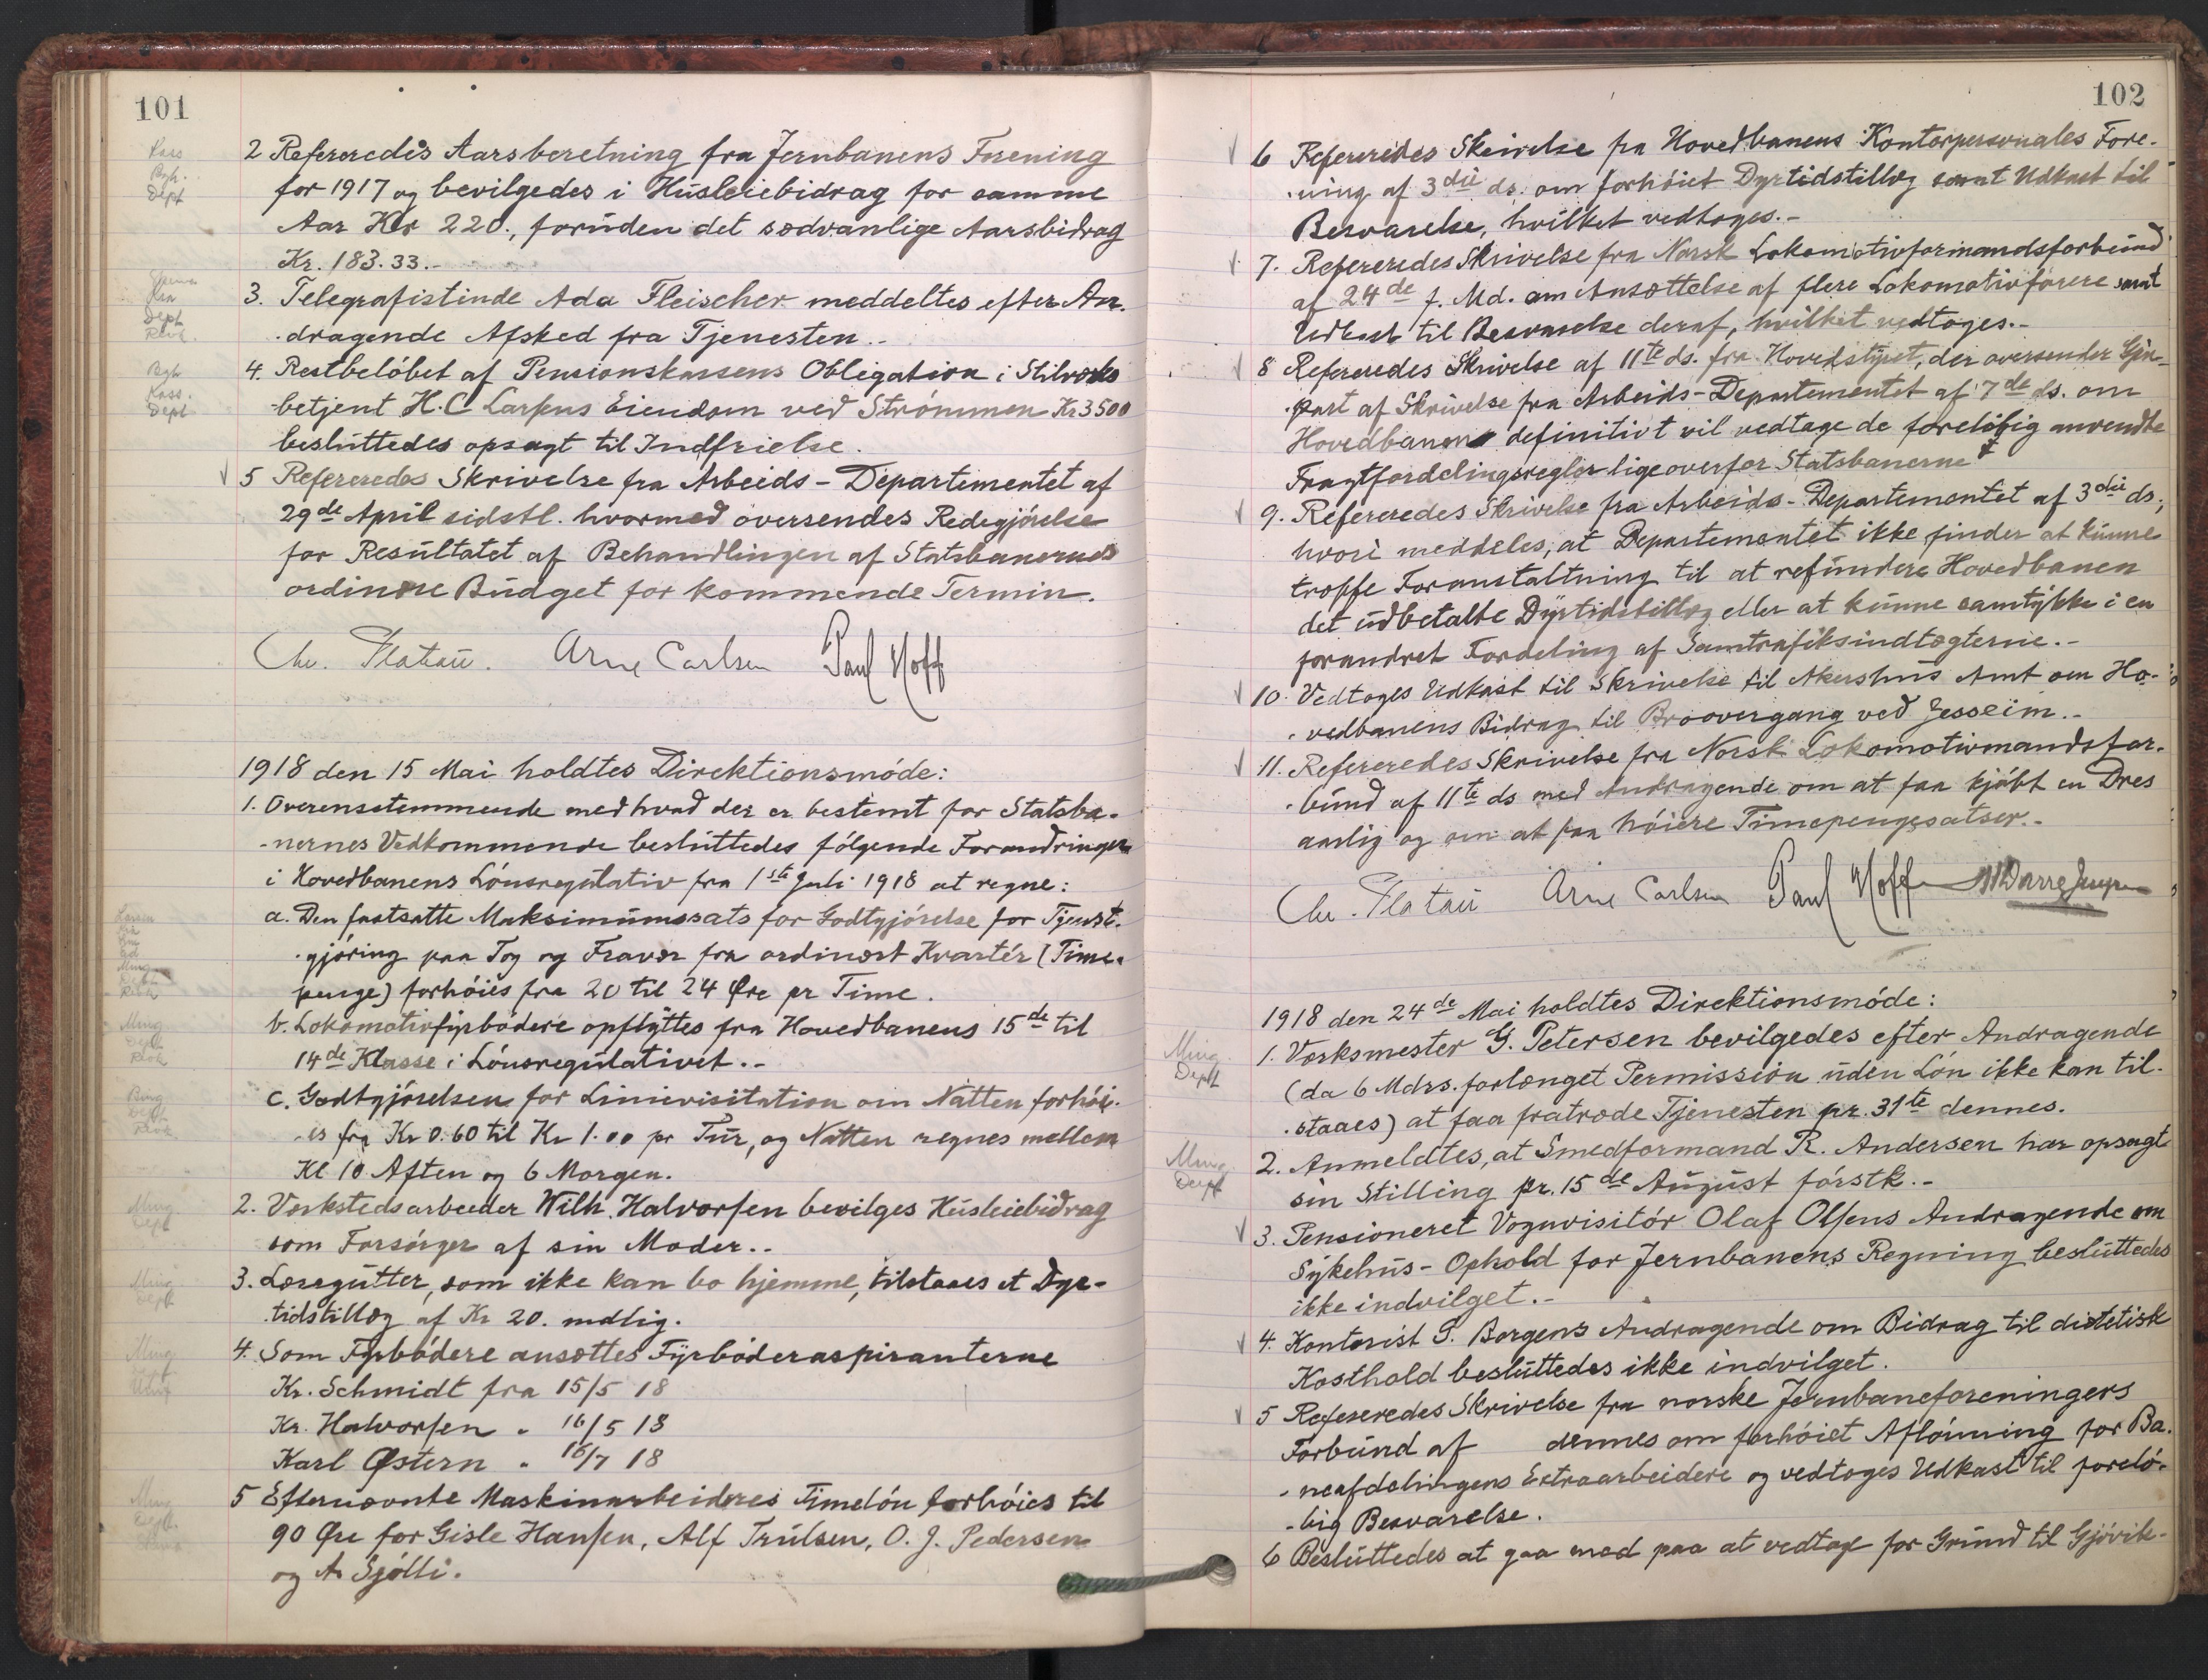 101
2 Refereredes Aarsberetning fra Jernbanens Forening
for 1917 og bevilgedes i Husleiebidrag for samme
Aar Kr 220., foruden det sædvanlige Aarsbidrag
Kr. 183.33.-
3. Telegrafistinde Ada Fleischer meddeltes efter An-
dragende Afsked fra Tjenesten.-
4. Restbeløbet af Pensionskassens Obligation i Stilværks
betjent H.C. Larsens Eiendom ved Strømmen Kr 3500
besluttedes opsagt til Indfrielse.
5 Refereredes Skrivelse fra Arbeids-Departementet af
29de April sidstl. hvormed oversendes Redegjørelse
for Resultatet af Behandlingen af Statsbanernes
ordinære Budget for kommende Termin.
Chr. Platou. Arne Carlsen Paul Hoff
1918 den 15 Mai holdtes Direktionsmøde:
1. Overensstemmende med hvad der er bestemt for Statsba-
-nernes Vedkommende besluttedes følgende Forandringer
i Hovedbanens Lønsregulativ fra 1ste Juli 1918 at regne:
a. Den fastsatte Maksimumssats for Godtgjørelse for Tjenst-
gjøring paa Tog og Fravær fra ordinært Kvartér (Time-
penge) forhøies fra 20 til 24 Øre pr Time.
b. Lokomotivfyrbødere opflyttes fra Hovedbanens 15de til
14de Klasse i Lønsregulativet.-
c. Godtgjørelsen for Linievisitation om Natten forhøi-
-es fra Kr 0.60 til Kr 1.00 pr Tur, og Natten regnes mellem
Kl 10 Aften og 6 Morgen.
2. Værkstedsarbeider Wilh. Halvorsen bevilges Husleiebidrag
som Forsørger af sin Moder.-
3. Læsegutter, som ikke kan bo hjemme, tilstaaes et Dyr-
tidstillæg af Kr 20. mdlig.
4. Som Fyrbødere ansættes Fyrbøderaspiranterne
Kr. Schmidt fra 15/5 18
Kr. Halvorsen " 16/5 18
Karl Østern " 16/7 18
5 Efternævnte Maskinarbeideres Timeløn forhøies til
90 Øre for Gisle Hansen, Alf Trulsen, O. J. Pedersen
og A. Sjølli.
102
6 Refereredes Skrivelse fra Hovedbanens Kontorpersonales Fore-
-ning af 3die ds. om forhøiet Dyrtidstillæg samt Udkast til
Besvarelse, hvilket vedtoges.-
7. Refereredes Skrivelse fra Norsk Lokomotivformandsforbund
af 24de f. Md. om Ansættelse af flere Lokomotivførere samt
Udkast til Besvarelse deraf, hvilket vedtoges.-
8 Refereredes Skrivelse af 11te ds. fra Hovedstyret, der oversender Gjen-
-part af Skrivelse fra Arbeids-Departementet af 7de ds. om
Hovedbanen definitivt vil vedtage de foreløbig anvendte
Fragtfordelingsregler ligeoverfor Statsbanerne
9. Refereredes Skrivelse fra Arbeids-Departementet af 3die ds.,
hvori meddeles, at Departementet ikke finder at kunne
træffe Foranstaltning til at refundere Hovedbanen
det udbetalte Dyrtidstillæg eller at kunne samtykke i en
forandret Fordeling af Samtrafiksindtægterne.-
10. Vedtoges Udkast til Skrivelse til Akershus Amt om Ho-
-vedbanens Bidrag til Broovergang ved Jessheim.-
11. Refereredes Skrivelse fra Norsk Lokomotivmandsfor-
-bund af 11te ds med Andragende om at faa kjøbt en Dres
aarlig og om at faa høiere Timepengesatser.-
Chr. Platou Arne Carlsen Paul Hoff
1918 den 24de Mai holdtes Direktionsmøde:
1. Værksmester G. Petersen bevilgedes efter Andragende
(da 6 Mdrs. forlænget Permission uden Løn ikke kan til-
-staaes) at faa fratræde Tjenesten pr. 31te dennes.
2. Anmeldtes, at Smedformand R. Andersen har opsagt
sin Stilling pr. 15de August førstk.-
3. Pensioneret Vognvisitør Olaf Olsens Andragende om
Sykehus-Ophold for Jernbanens Regning besluttedes
ikke indvilget.-
4. Kontorist S. Borgens Andragende om Bidrag til diætetisk
Kosthold besluttedes ikke indvilget.
5 Refereredes Skrivelse fra norske Jernbaneforeningers
Forbund af dennes om forhøiet Aflønning for Ba-
-neafdelingens Extraarbeidere og vedtoges Udkast til forelø-
-big Besvarelse.
6 Besluttedes at gaa med paa at vedtage for Grund til Gjøvik-